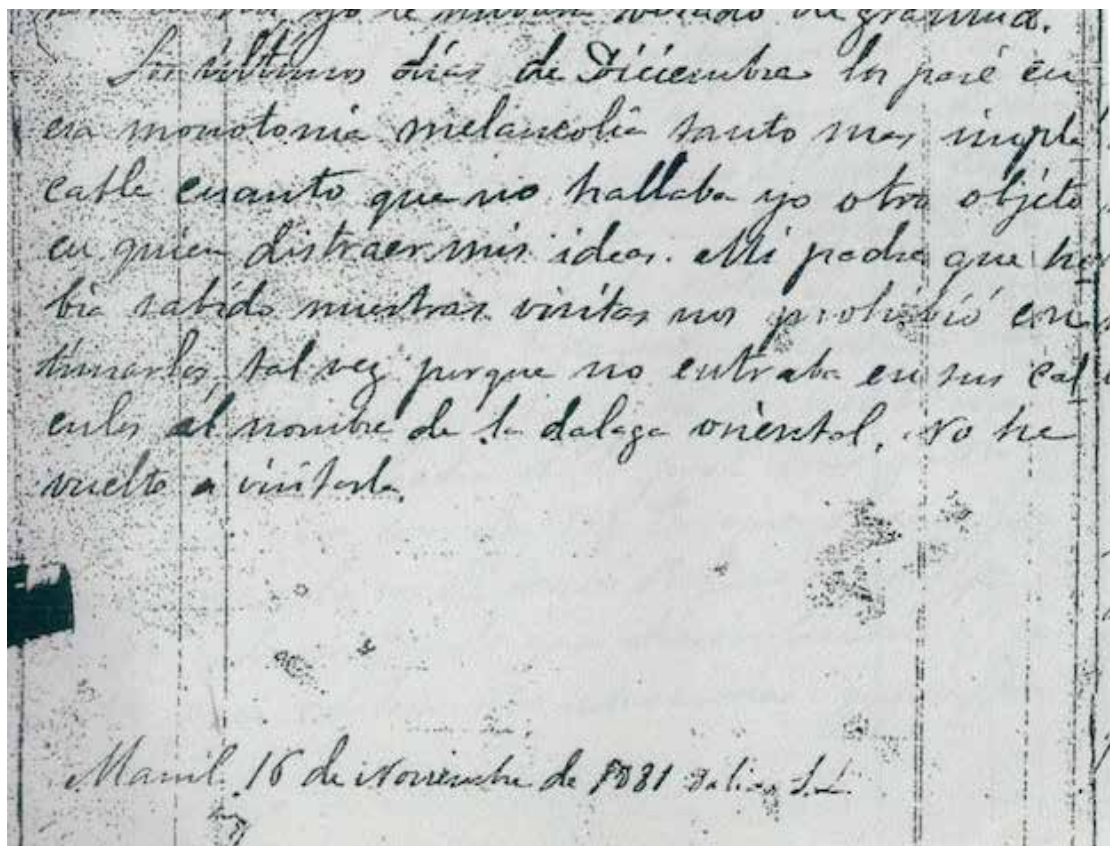 yo le miraba de gratitud.
Los últimos dias de Diciembre los pasé en
esa monotonia melancolia tanto mas impla
cable cuanto que no hallaba yo otro objeto
en quien distraer mis ideas. Mi padre que ha
bia sabido nuestras visitas nos prohibió con
tinuarlas, tal vez porque no entraba en sus cál
culos el nombre de la dalaga oriental. No he
vuelto a visitarla.
Manil 16 de Noviembre de 1881